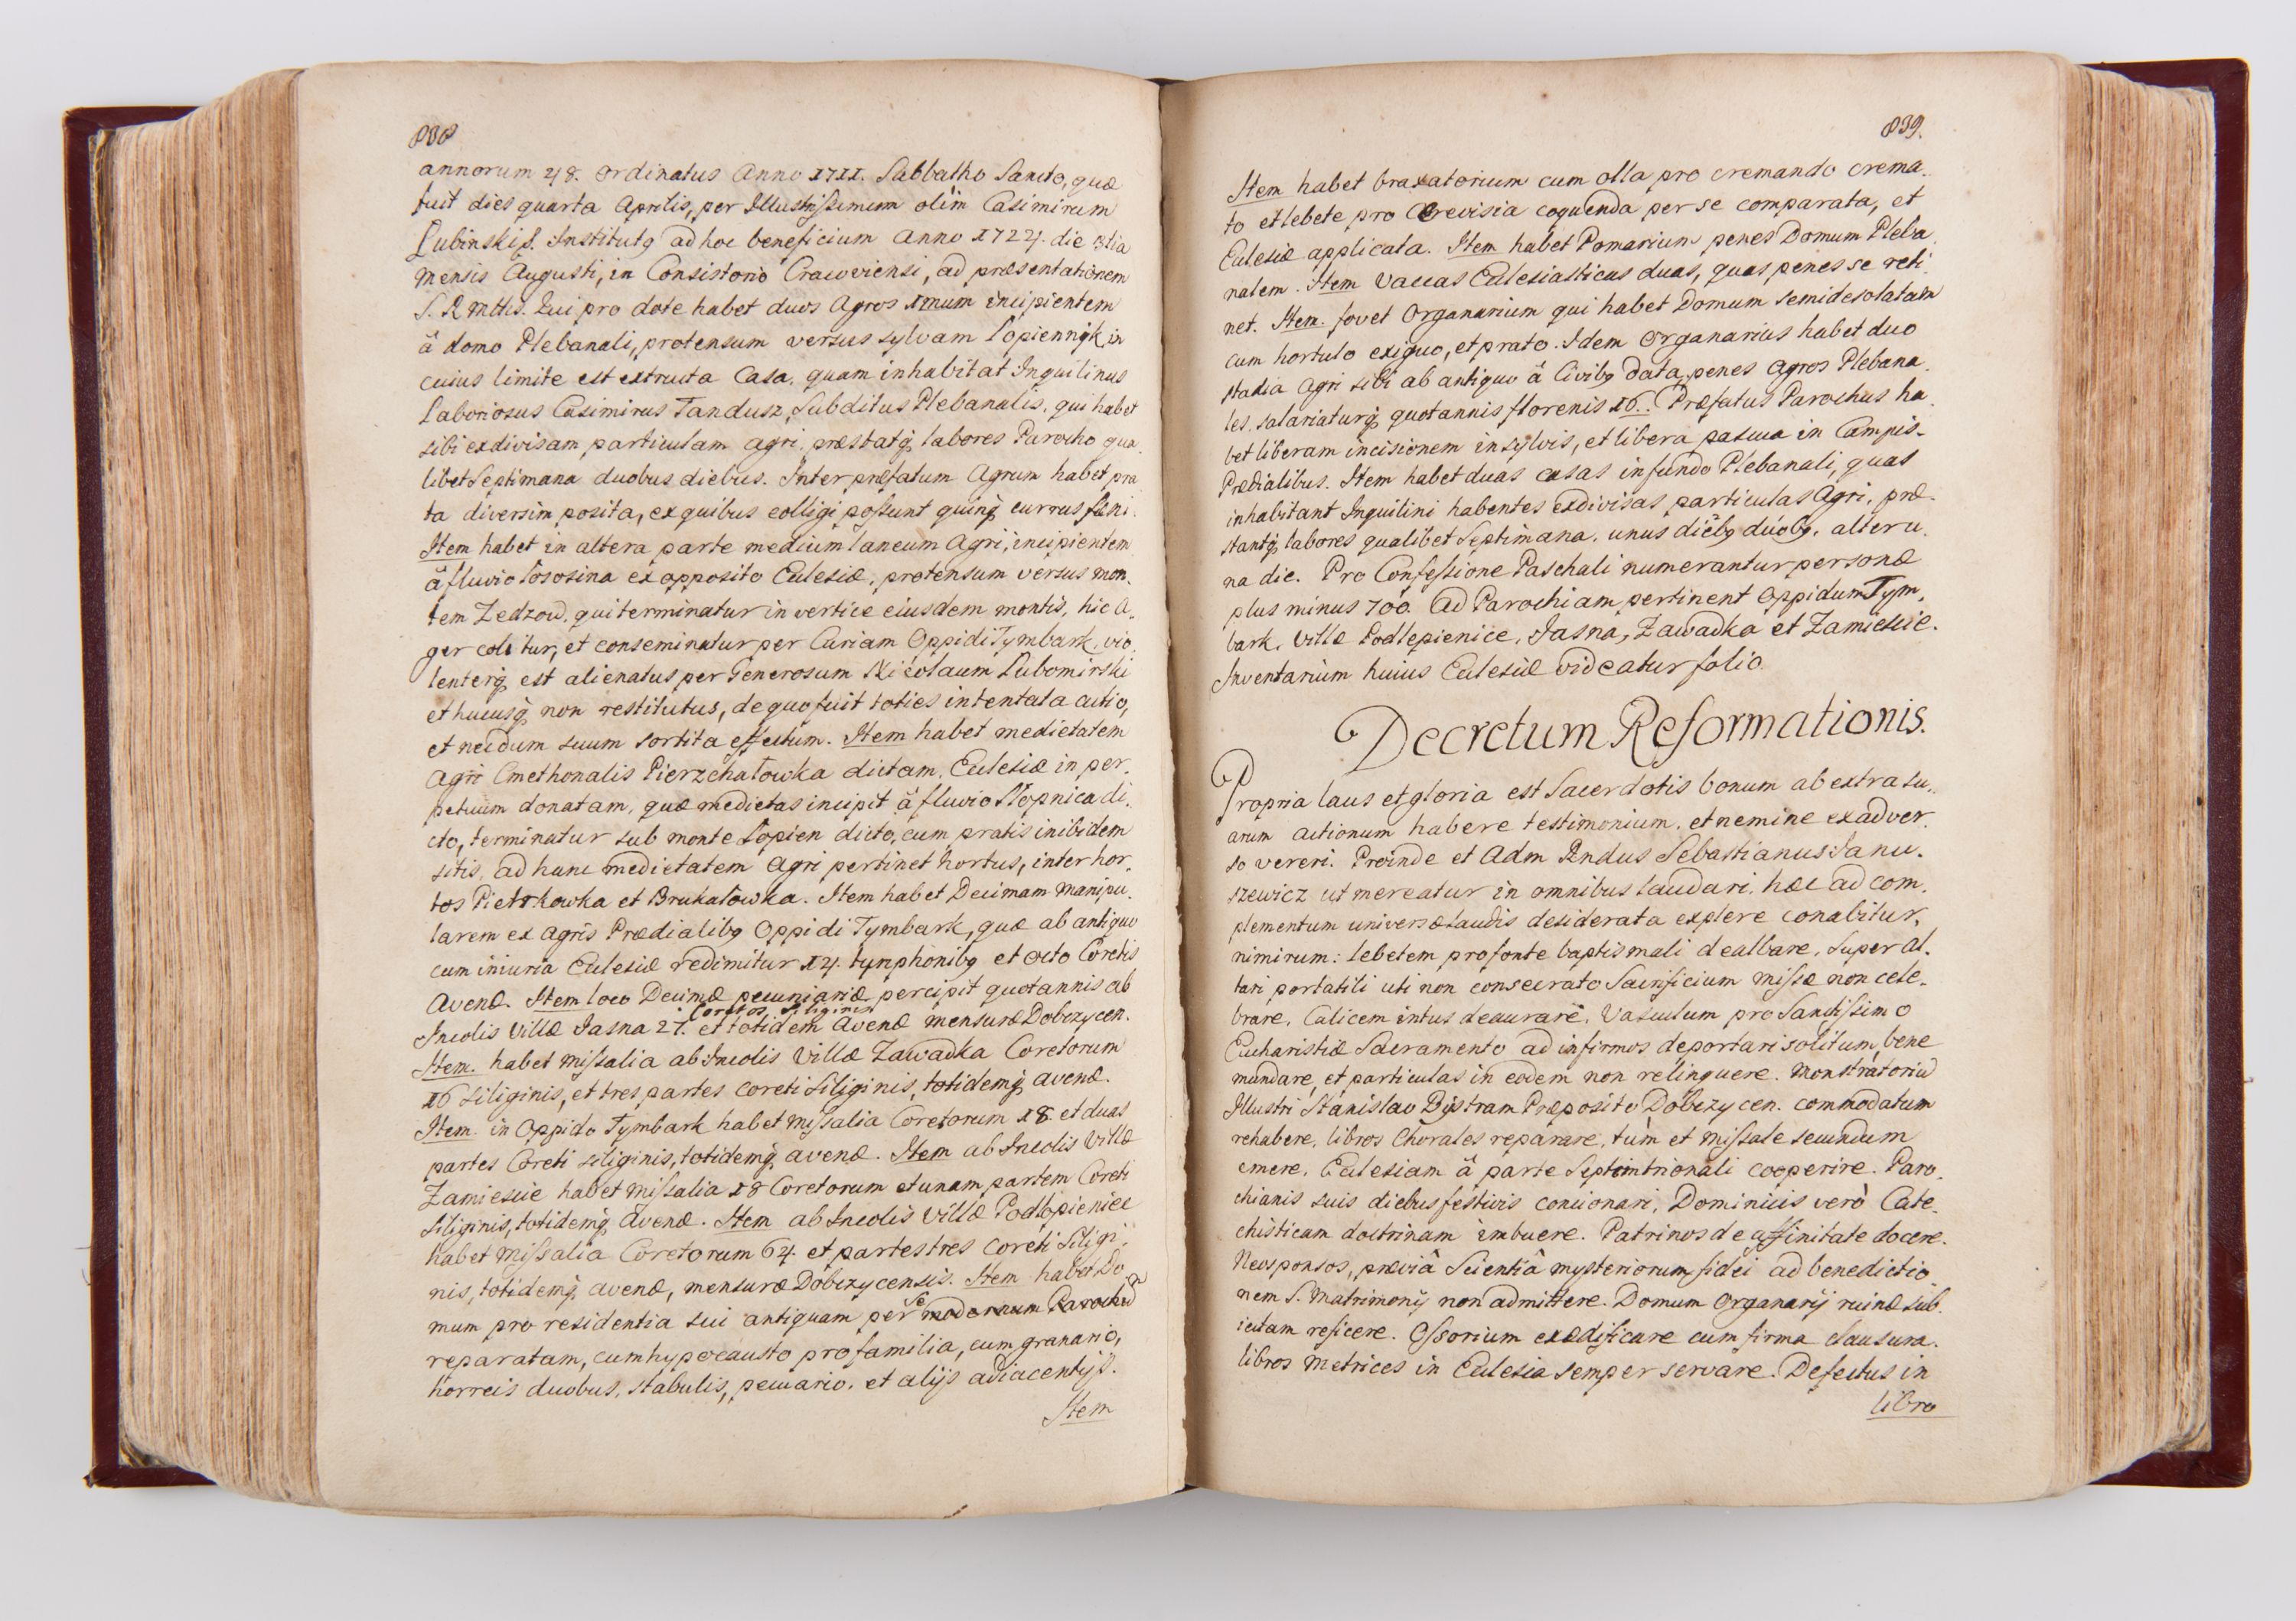 838
annorum 48. ordinatus Anno 1711. Sabbatho Sancto, quæ
fuit dies quarta Aprilis, per Illustrissimum olim Casimirum
Łubinski S. Institutq ad hoc beneficium Anno 1724. die 3tia
Mensis Augusti, in Consistorio Cracoviensi, ad præsentationem
S. R. Mttis. Qui pro dote habet duos Agros 1mum incipientem
â domo Plebanali, protensum versus sylvam Łopiennik, in
cuius limite est extructa Casa, quam inhabitat Inquilinus
Laboriosus Casimirus Tandusz, Subditus Plebanalis, qui habet
sibi exdivisam particulam agri, præstatq, labores Parocho qua-
libet Septimana duobus diebus. Inter præfatum Agrum habet pra
ta diversim posita, ex quibus colligi possunt quinq, currus fæni.
Item habet in altera parte medium laneum Agri, incipientem
â fluvio Łososina ex opposito Ecclesiæ, protensum versus mon-
tem Zedzow, qui terminatur in vertice eiusdem montis, hic A-
ger colitur, et conseminatur per Curiam Oppidi Tymbark, vio-
lenterq, est alienatus per Generosum Nicolaum Lubomirski
et hucusq, non restitutus, de quo fuit toties intentata actio,
et necdum suum sortita effectum. Item habet medietatem
Agri Cmethonalis Pierzchałowka dictam, Ecclesiæ in per-
petuum donatam, quæ medietas incipit â fluvio Słopnica di-
cto, terminatur sub monte Łopien dicto, cum pratis inibidem
sitis, ad hanc medietatem Agri pertinet hortus, inter hor-
tos Pietrkowka et Brukałowka. Item habet Decimam Manipu-
larem ex Agris Prædialibq Oppidi Tymbark, quæ ab antiquo
cum iniuria Ecclesiæ redimitur 14. tynphonibq et octo Coretis
Avenæ. Item loco Decimæ pecuniariæ percipit quotannis ab
Coretos Siliginis
Incolis Villæ Jasna 27. et totidem Avenæ mensuræ Dobczycen.
Item. habet Missalia ab Incolis Villæ Zawadka Coretorum
16 siliginis, et tres partes coreti Siliginis, totidemq, avenæ.
Item. in Oppido Tymbark habet Missalia Coretorum 18. et duas
partes Coreti siliginis, totidemq, avenæ. Item ab Incolis Villæ
Zamiescie habet Missalia 18 Coretorum et unam partem Coreti
siliginis, totidemq, avenæ. Item ab Incolis Villæ Podłopienice
habet Missalia Coretorum 64. et partes tres coreti Siligi-
nis, totidemq, avenæ, mensuræ Dobczycensis. Item habet Do-
mum pro residentia sui antiquam per se modernum Parochum
reparatam, cum hypocausto pro familia, cum granario,
horreis duobus, stabulis, pecuario, et alijs adiacentijs.
Item
839.
Item habet braxatorium cum olla pro cremando crema-
to et lebete pro Crevisia coquenda per se comparata, et
Ecclesiæ applicata. Item habet Pomarium penes Domum Pleba-
nalem. Item Vaccas Ecclesiasticas duas, quas penes se reti-
net. Item. fovet Organarium qui habet Domum semidesolatam
cum hortulo exiguo, et prato. Idem Organarius habet duo
stadia Agri sibi ab antiquo â Civibq data, penes Agros Plebana-
les, salariaturq, quotannis florenis 16. Præfatus Parochus ha-
bet liberam incisionem in sylvis, et libera pascua in Campis-
Prædialibus. Item habet duas casas in fundo Plebanali, quas
inhabitant Inquilini habentes exdivisas particulas Agri, præ-
stantq, labores qualibet Septimana, unus diebq duobq, alter u-
na die. Pro Confessione Paschali numerantur personæ
plus minus 700. Ad Parochiam pertinent Oppidum Tym-
bark, Villæ Podlepienice, Jasna, Zawadka et Zamiescie.
Inventarium huius Ecclesiæ videatur folio
Decretum Reformationis.
Propria laus et gloria est Sacerdotis bonum ab extra su-
arum actionum habere testimonium, et nemine ex adver-
so vereri. Proinde et Adm Rndus Sebastianus Janu-
szewicz ut mereatur in omnibus laudari, hæc ad com-
plementum universæ laudis desiderata explere conabitur,
nimirum: lebetem pro fonte baptismali dealbare, Super Al-
tari portatili uti non consecrato Sacrificium Missæ non cele-
brare, Calicem intus deaurare, Vasculum pro Sanctissimo
Eucharistiæ Sacramento ad infirmos deportari solitum, bene
mundare, et particulas in eodem non relinquere. Monstratoriu
Illustri Stanislao Bystram Præposito Dobczycen. commodatum
rehabere, libros Chorales reparare, tùm et Missale secundum
emere, Ecclesiam â parte Septemtrionali cooperire. Paro-
chianis suis diebus festivis concionari, Dominicis verò Cate-
chisticam doctrinam imbuere. Patrinos de affinitate docere.
Neosponsos, præviâ Scientiâ mysteriorum fidei ad benedictio
nem S. Matrimonij non admittere. Domum Organarij ruinæ sub-
iectam reficere. Ossorium exædificare cum firma clausura.
libros Metrices in Ecclesia semper servare. Defectus in
libro